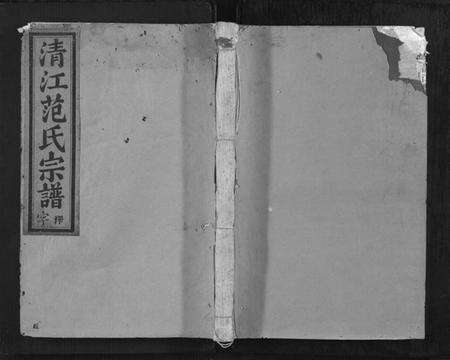 清江范氏宗譜
字